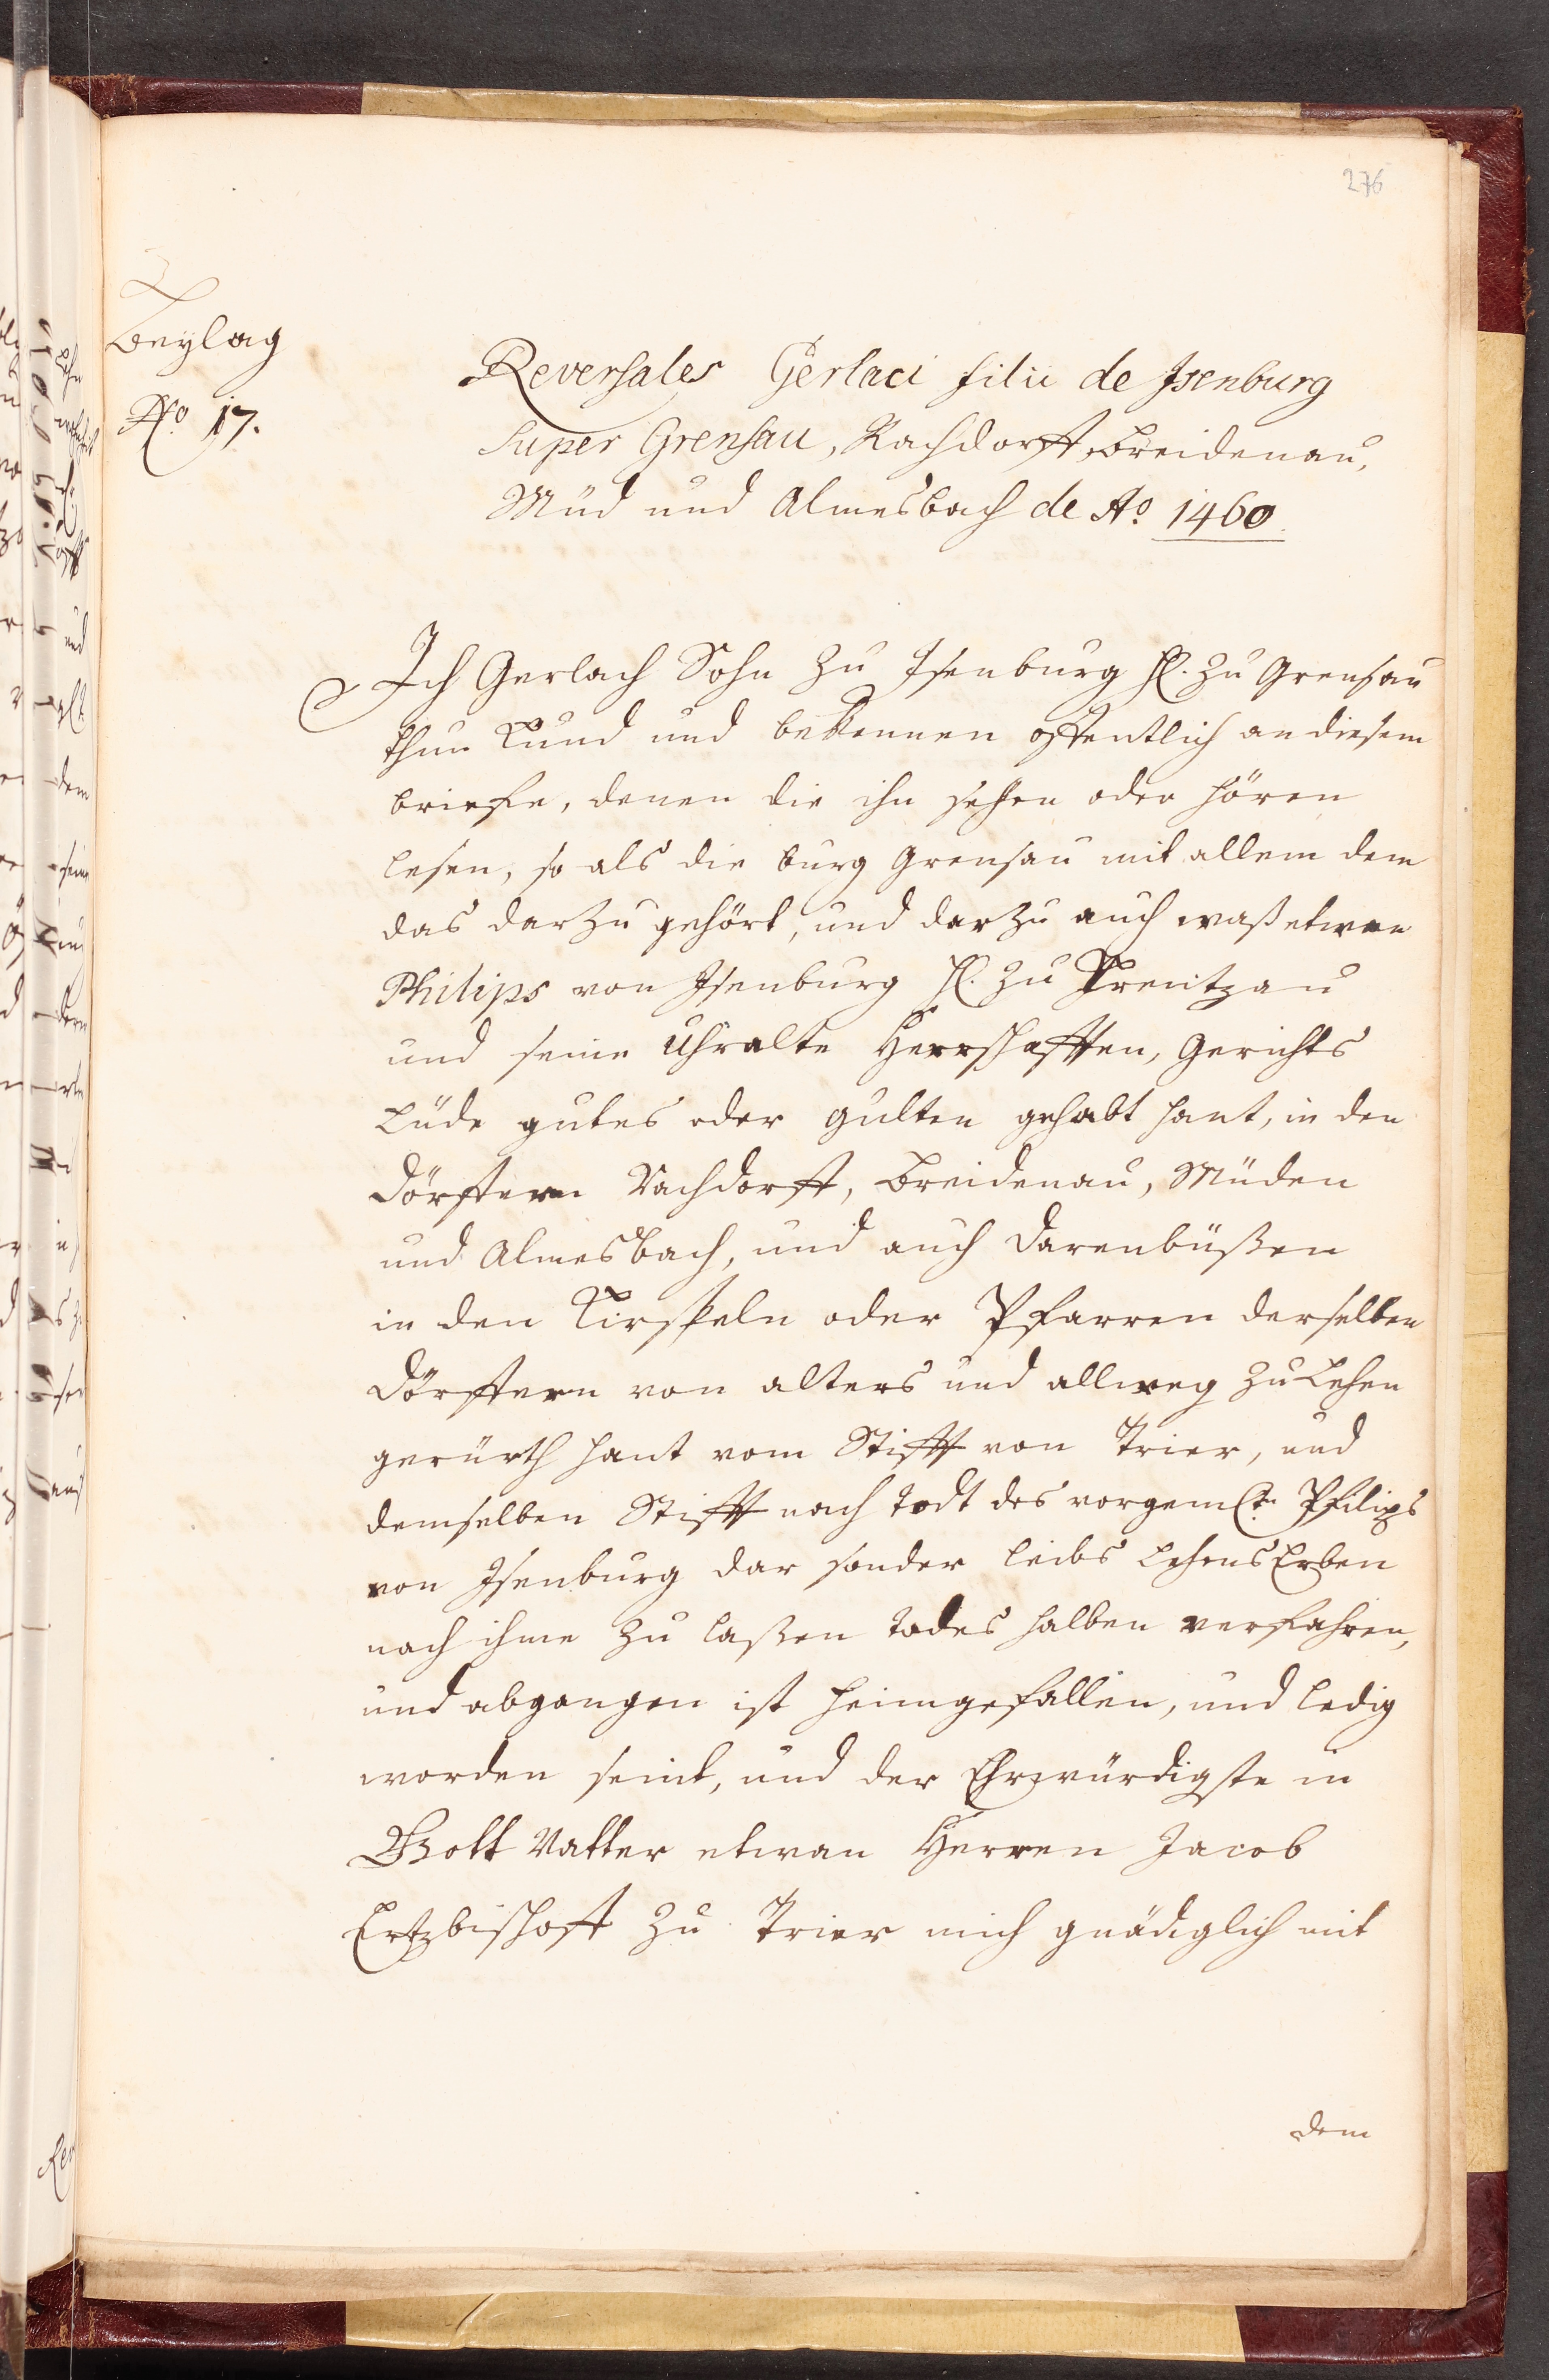 276
Beylag
No. 17.
Reversales Gerlaci filii de Isenburg
super Grensau, Rachdorff, Breidenau,
Müd und Almesbach de Ao. 1460
Ich Gerlach Sohn zu Isenburg H. zu Grensau
thun kund und bekennen offentlich an diesem
brieffe, denen die ihn sehen oder hören
lesen, so als die burg Grensau mit allem dem
das darzu gehört, und darzu auch waß etwan
Philips von Isenburg H. zu
und seine Uhralte Herrschafften, Gerichts
Lüde gutes oder gulten gehabt hant, in den
Dörffern Rachdorff, Breidenau, Müden
und Almesbach, und auch darenbüßen
in den Kirspeln oder Pfarren derselben
Dörffern von alters und allweg zu Lehen
gerürth hant vom Stifft von Trier, und
demselben Stifft nach todt des vorgemlt. Philips
von Isenburg dar sonder leibs lehens Erben
nach ihme zu laßen todes halben verfahren,
und abgangen ist heimgefallen, und ledig
worden seint, und der Ehrwürdigste in
Gott Vatter etwan Herren Jacob
Ertzbischoff zu Trier mich gnädiglich mit
dem